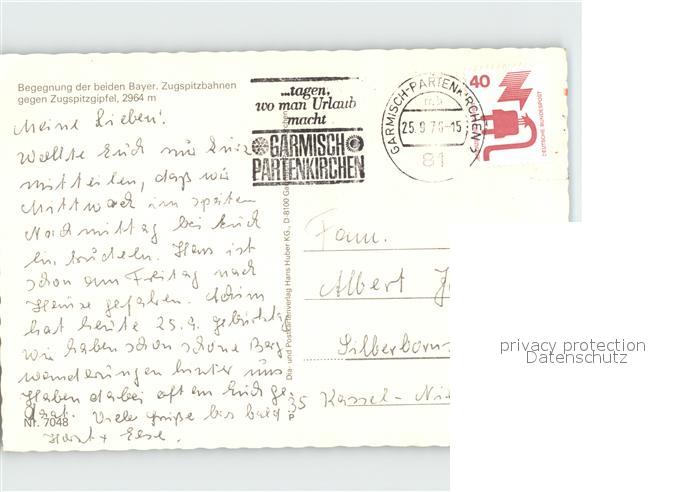 Begegnung der beiden Bayer. Zugspitzbahnen
gegen Zugspitzgipfel, 2964 m
...tagen,
wo man Urlaub
macht
GARMISCH-
PARTENKIRCHEN
GARMISCH-PARTENKIRCHEN
25.9.76-15
81
40
DEUTSCHE BUNDESPOST
Meine Lieben!
Wollte Euch nur kurz
mitteilen, daß wir
Mittwoch im späten
Nachmittag bei Euch
eintrudeln. Hans ist
schon am Freitag nach
Hause gefahren.
hat heute 25.9. Geburtstag
Wir haben schon schöne Berg
wanderungen hinter uns
Haben dabei oft an Euch ge
dacht. Viele Grüße bis bald
Horst +
Nr. 7048
Dia- und Postkartenverlag Hans Huber KG., D 8100 Garmisch-Partenkirchen
Fam.
Albert
Silberborn
35 Kassel-Nie
privacy protection
Datenschutz